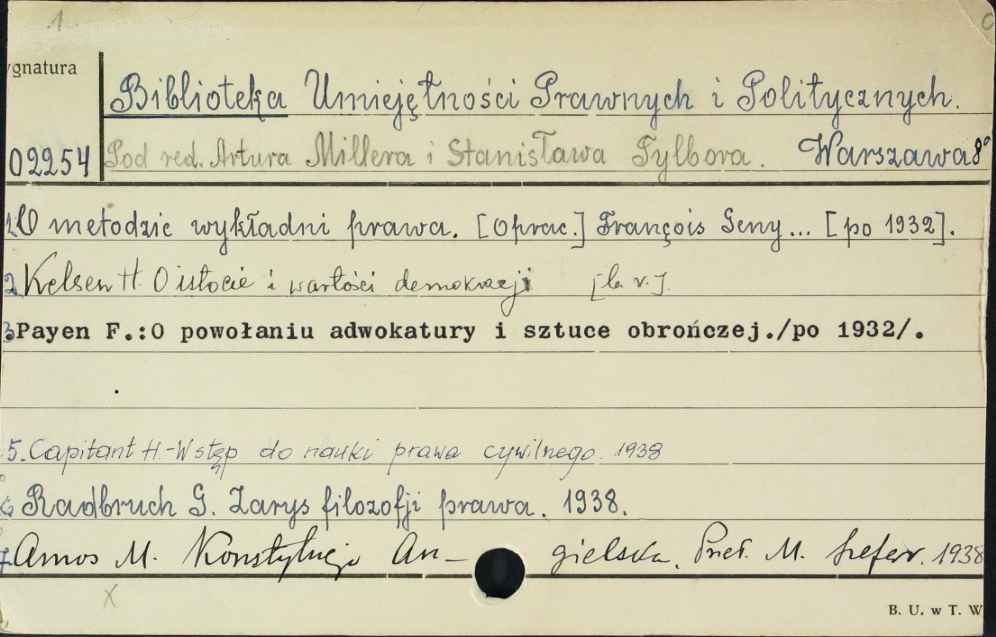 1
ygnatura
Biblioteka Umiejętności Prawnych i Politycznych.
02254 Pod red. Artura Millera i Stanisława Tylbora. Warszawa 8°
1. O metodzie wykładni prawa. [Oprac.] François Geny... [po 1932].
2 Kelsen H. O istocie i wartości demokracji [b. r.].
3 Payen F.:O powołaniu adwokatury i sztuce obrończej./po 1932/.
5. Capitant H.-Wstęp do nauki prawa cywilnego. 1938
6 Radbruch G. Zarys filozofji prawa. 1938.
7 Amos M. Konstytucja An- gielska. Przeł. M. Szefer. 1938
X
B. U. w T. W